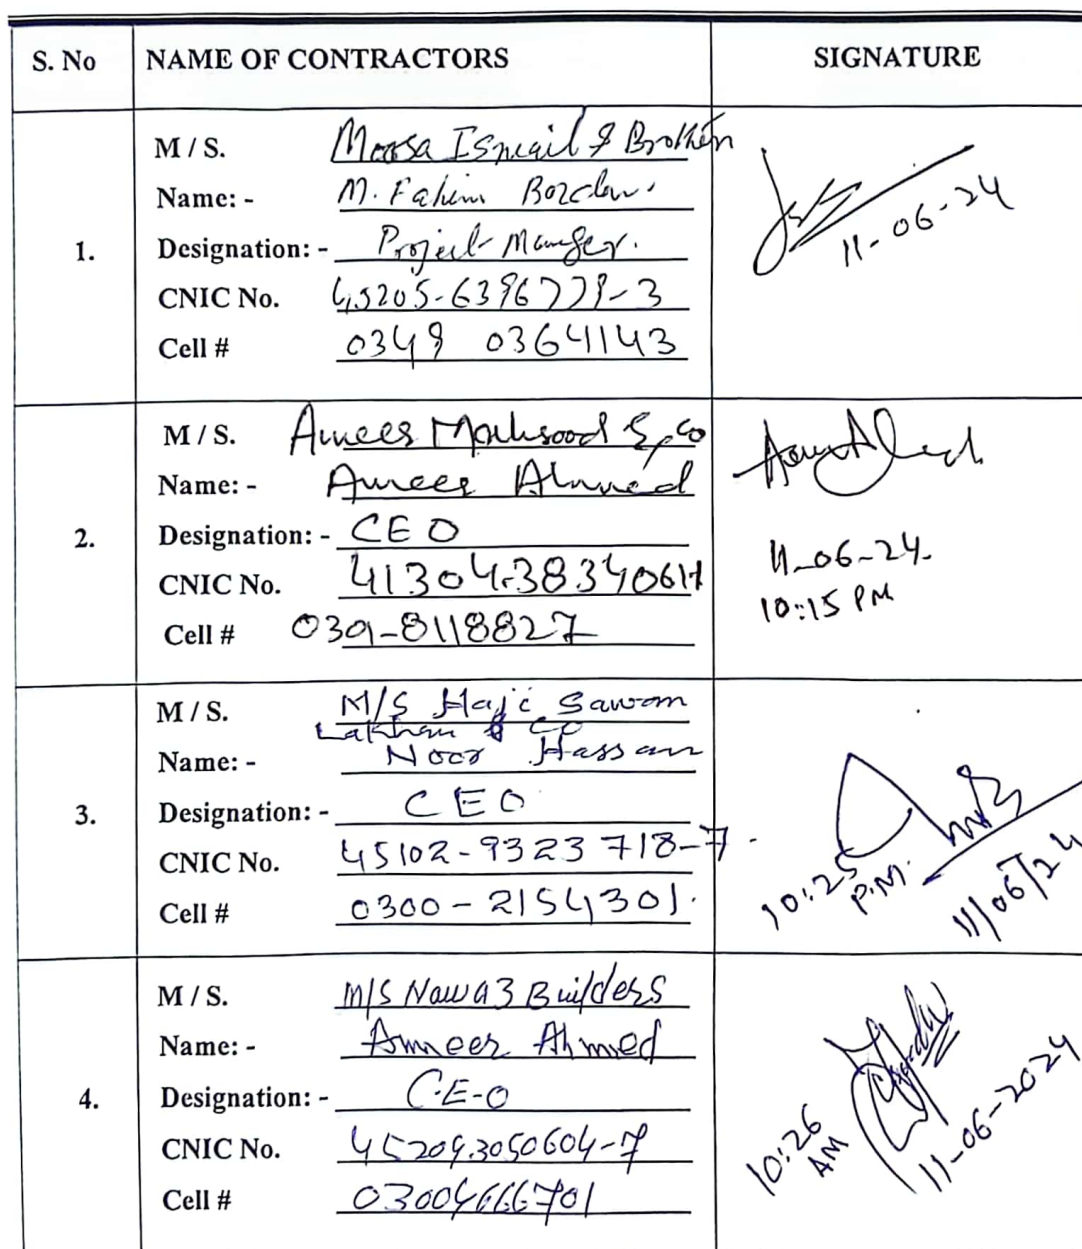 S. No NAME OF CONTRACTORS SIGNATURE
1.
M / S. Moosa Ismail & Brothers
Name: - M. Fahim
Designation: - Project Manager.
CNIC No.
Cell # 0349 03641143
11-06-24
2.
M / S. Ameer Maqsood & Co
Name: - Ameer Ahmed
Designation: - CEO
CNIC No.
Cell #
11-06-24-
10:15 PM
3.
M / S. M/S Haji Sawan
Lakhan & Co
Name: - Noor Hassan
Designation: - CEO
CNIC No. 45102-9323718-7
Cell # 0300-2154301.
10:25
P.M.
11/06/24
4.
M / S. M/S Nawaz Builders
Name: - Ameer Ahmed
Designation: - C.E-O
CNIC No. 45204.3050604-7
Cell # 03004666701
10:26
AM
11-06-2024